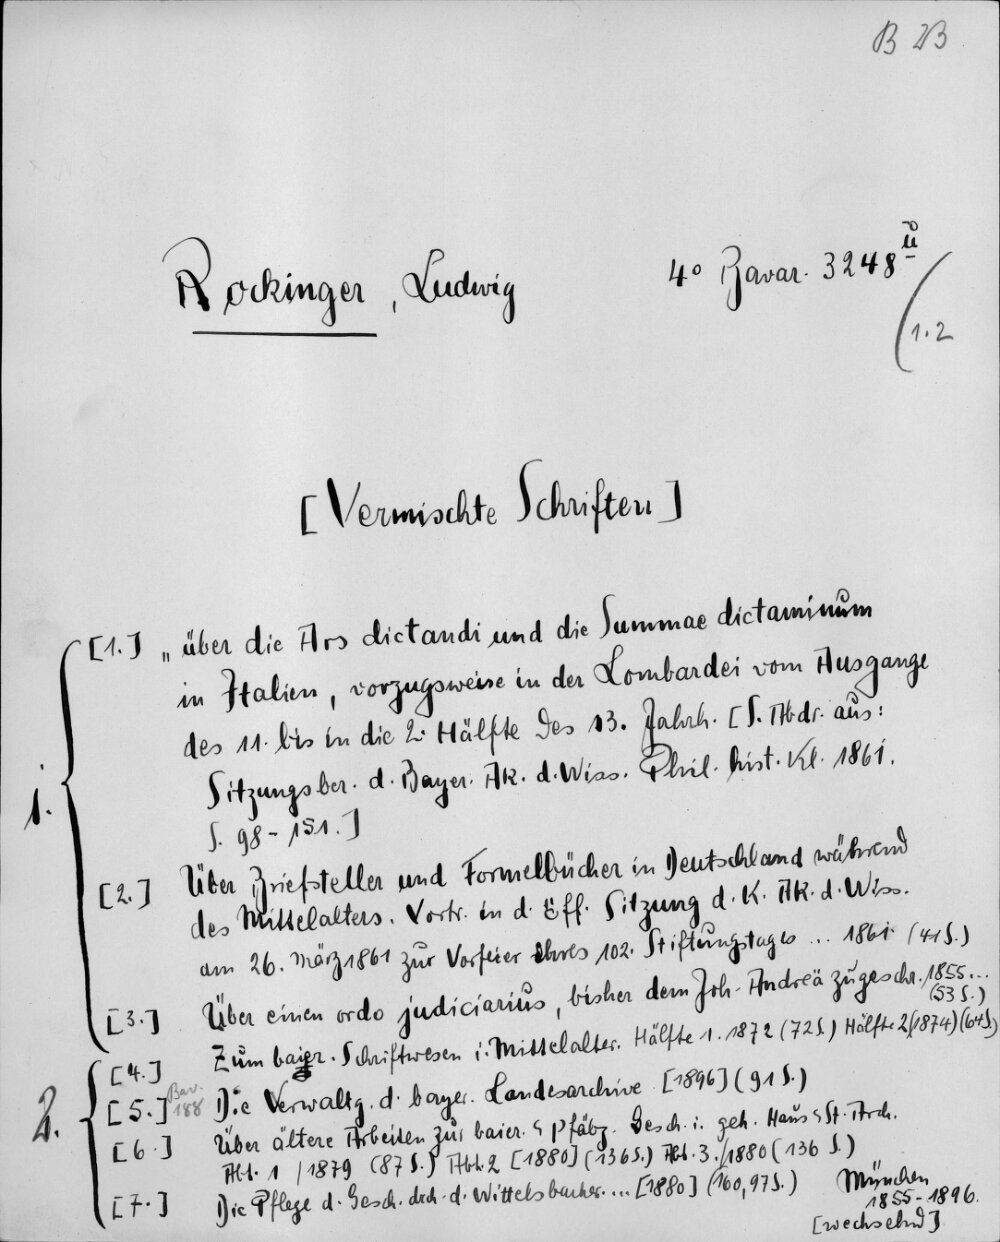 B 2B
Rockinger, Ludwig
4° Bavar. 3248 u
(1.2
[Vermischte Schriften]
1.
[1.] „über die Ars dictandi und die Summae dictaminum
in Italien, vorzugsweise in der Lombardei vom Ausgange
des 11. bis in die 2. Hälfte des 13. Jahrh. [S. Abdr. aus:
Sitzungsber. d. Bayer. Ak. d. Wiss. Phil. hist. Kl. 1861.
S. 98-151.]
[2.] Über Briefsteller und Formelbücher in Deutschland während
des Mittelalters. Vortr. in d. öff. Sitzung d. K. Ak. d. Wiss.
am 26. März 1861 zur Vorfeier ihres 102. Stiftungstages ... 1861 (41 S.)
[3.] Über einen ordo judiciarius, bisher dem Joh. Andreä zugeschr. 1855...
(53 S.)
2.
[4.] Zum baier. Schriftwesen i. Mittelalter. Hälfte 1. 1872 (72 S.) Hälfte 2 (1874) (64 S.)
[5.] Bav. 188 Die Verwaltg. d. bayer. Landesarchive [1896] (91 S.)
[6.] Über ältere Arbeiten zur baier. u. pfälz. Gesch. i. geh. Haus u. St. Arch.
Abt. 1 /1879 (87 S.) Abt. 2 [1880] (136 S.) Abt. 3./1880 (136 S.)
[7.] Die Pflege d. Gesch. dch. d. Wittelsbacher. ... [1880] (160, 97 S.)
München
1855-1896.
[wechselnd]